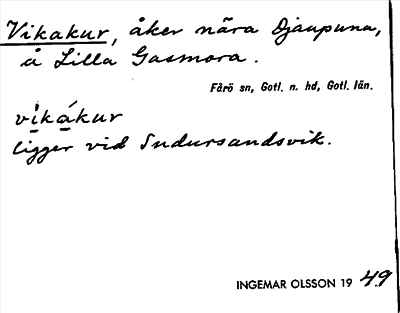 Vikakur, åker nära Djaupuna,
å Lilla Gasmora.
Fårö sn, Gotl. n. hd, Gotl. län.
vikákur
ligger vid Sudursandsvik.
INGEMAR OLSSON 19 49